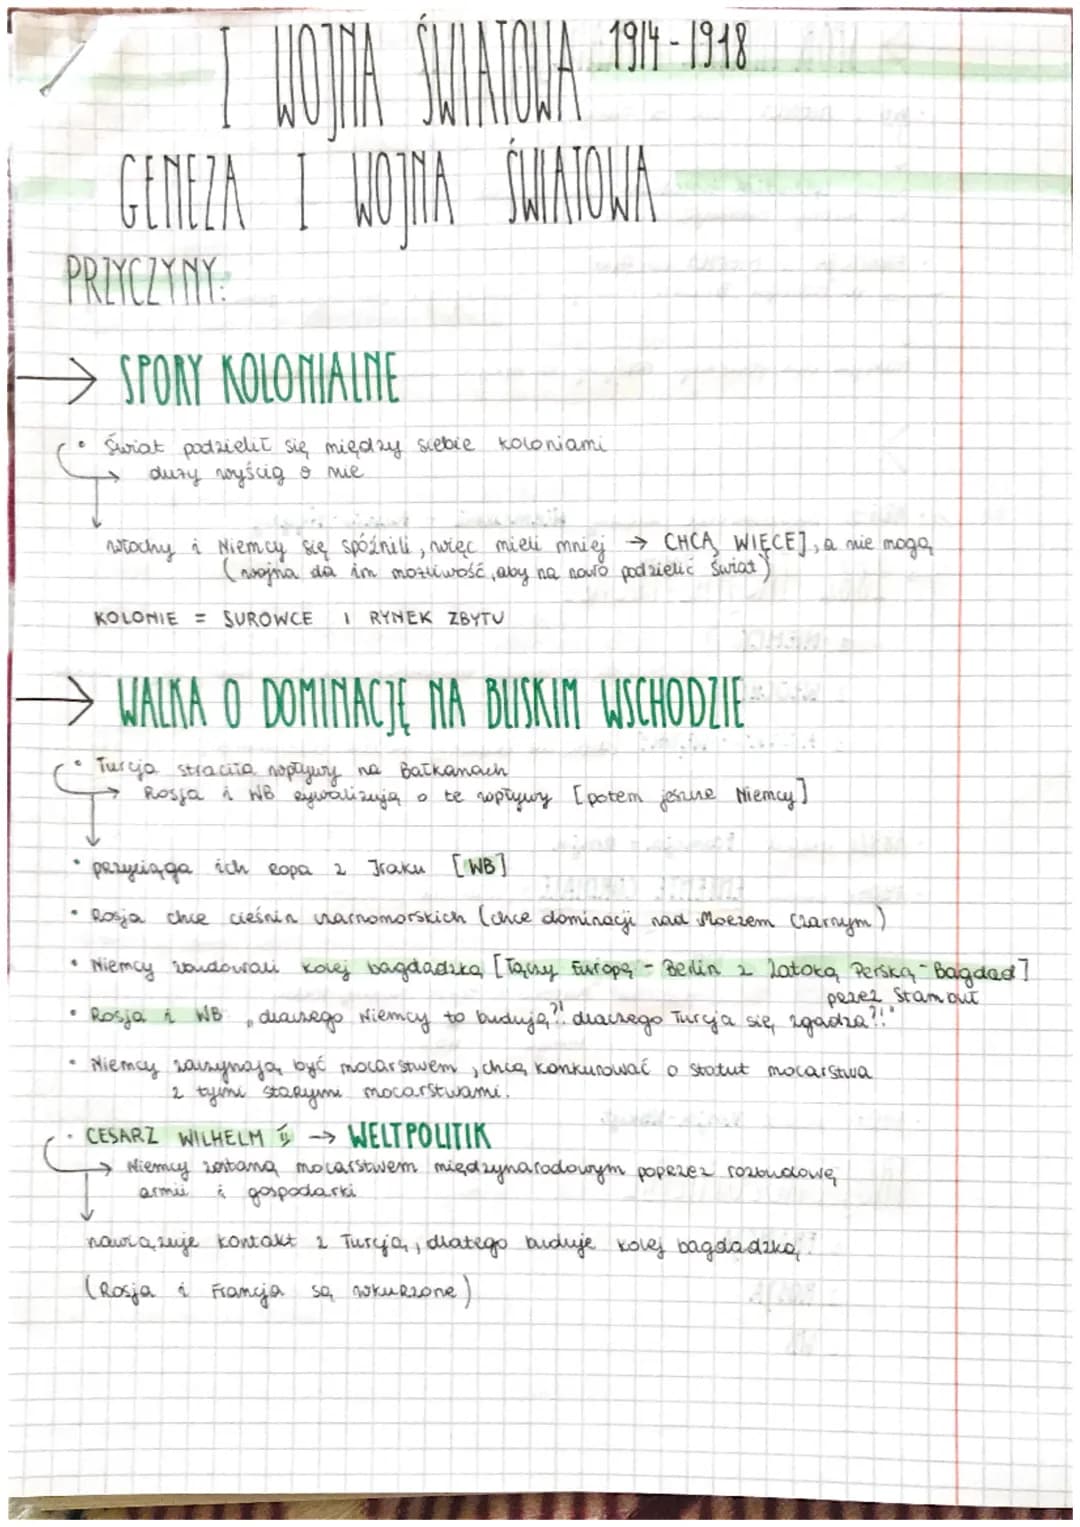 I WOJNA ŚWIATOWA 1914-1918
GENEZA I WOJNA ŚWIATOWA
PRZYCZYNY:
→ SPORY KOLONIALNE
• Świat podzielił się między siebie koloniami
→ duży wyścig o nie
włochy i Niemcy się spóźnili, więc mieli mniej → CHCĄ WIĘCEJ, a nie mogą
(wojna da im możliwość, aby na nowo podzielić świat)
KOLONIE = SUROWCE I RYNEK ZBYTU
→ WALKA O DOMINACJĘ NA BLISKIM WSCHODZIE
• Turcja straciła wpływy na Bałkanach
→ Rosja i WB rywalizują o te wpływy [potem jeszcze Niemcy]
• przyciąga ich ropa z Iraku [WB]
• Rosja chce cieśnin czarnomorskich (chce dominacji nad Morzem Czarnym)
• Niemcy zbudowali kolej bagdadzką [Łączy Europę - Berlin z Zatoką Perską - Bagdad]
przez Stambuł
• Rosja i WB „dlaczego Niemcy to budują?! dlaczego Turcja się zgadza?!"
• Niemcy zaczynają być mocarstwem, chcą konkurować o statut mocarstwa
z tymi starymi mocarstwami.
• CESARZ WILHELM II → WELTPOLITIK
→ Niemcy zostaną mocarstwem międzynarodowym poprzez rozbudowę
armii i gospodarki
nawiązuje kontakt z Turcją, dlatego buduje kolej bagdadzką.
(Rosja i Francja są wkurzone)